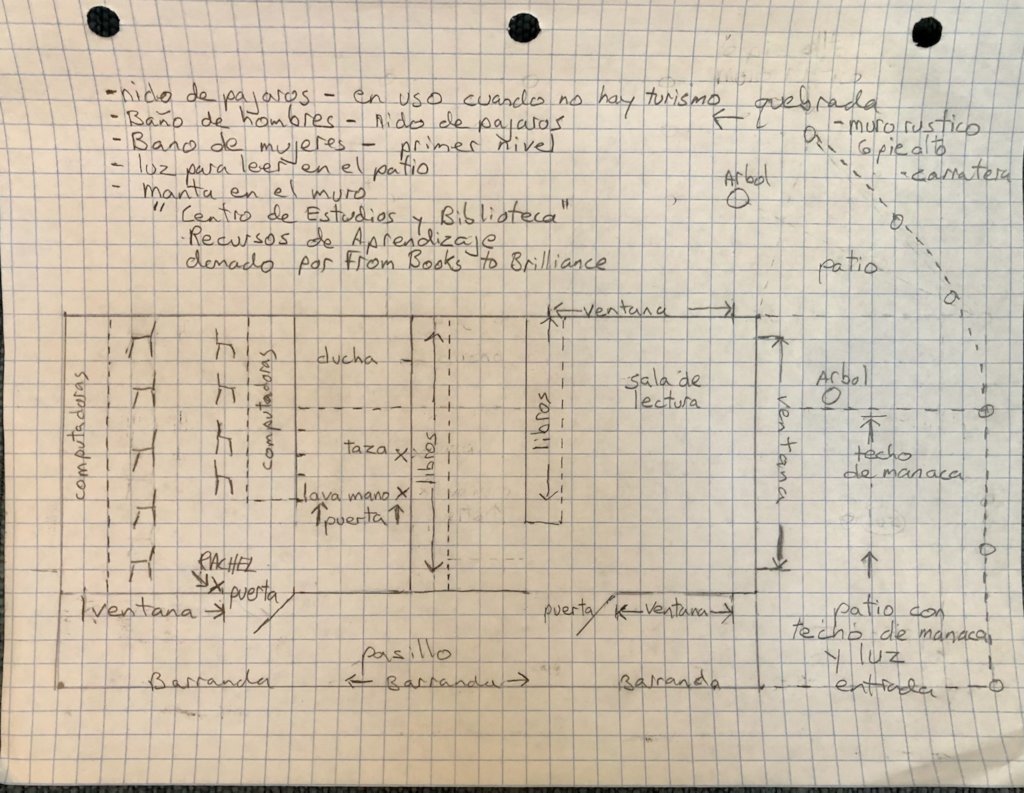 -nido de pajaros - en uso cuando no hay turismo
- Baño de hombres - nido de pajaros
- Bano de mujeres - primer nivel
- luz para leer en el patio
- manta en el muro
" Centro de Estudios y Biblioteca"
Recursos de Aprendizaje
donado por From Books to Brilliance
← quebrada
- muro rustico
6 pie alto
- carratera
Arbol
patio
← ventana →
computadoras
computadoras
ducha
taza x
lava mano x
↑ puerta ↑
libros
libros
sala de
lectura
ventana
Arbol
techo
de manaca
RACHEL
x puerta
ventana →
puerta
← ventana →
patio con
techo de manaca
y luz
pasillo
Barranda
← Barranda →
Barranda
entrada